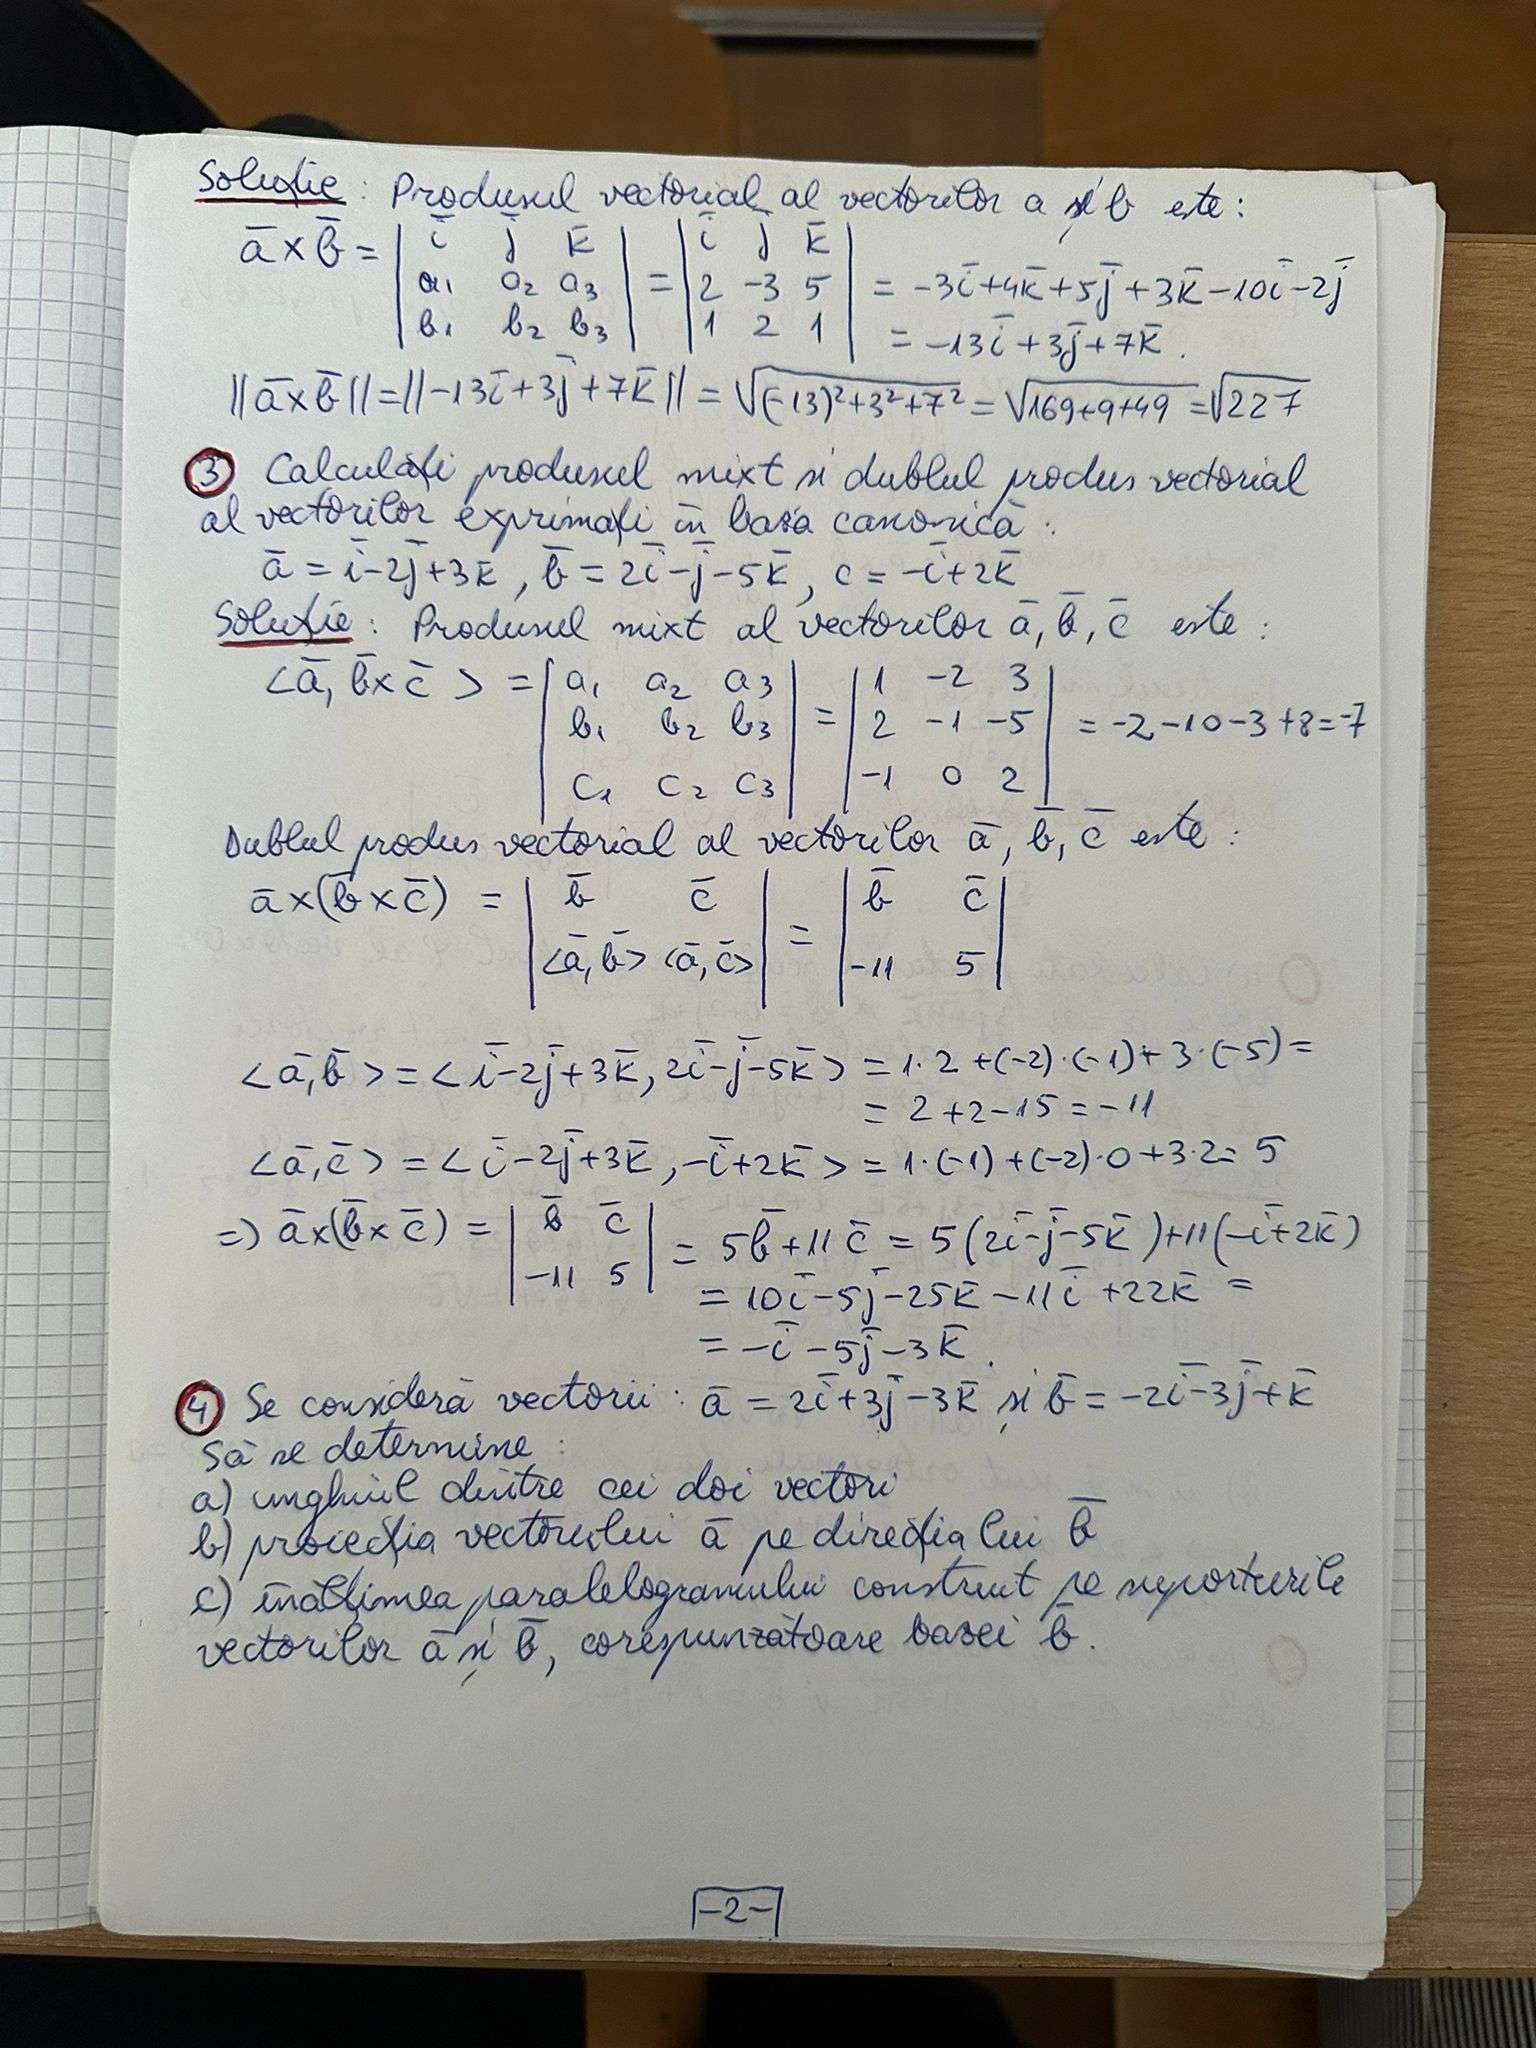 Soluție: Produsul vectorial al vectorilor a și b este:
a̅ × b̅ = | i̅ j̅ k̅ | = | i̅ j̅ k̅ |
| a₁ a₂ a₃ | | 2 -3 5 | = -3i̅+4k̅+5j̅+3k̅-10i̅-2j̅
| b₁ b₂ b₃ | | 1 2 1 | = -13i̅+3j̅+7k̅.
||a̅×b̅|| = ||-13i̅+3j̅+7k̅|| = √((-13)²+3²+7²) = √(169+9+49) = √227
③ Calculați produsul mixt si dublul produs vectorial
al vectorilor exprimați în baza canonică:
a̅ = i̅-2j̅+3k̅, b̅ = 2i̅-j̅-5k̅, c = -i̅+2k̅
Soluție: Produsul mixt al vectorilor a̅, b̅, c̅ este:
<a̅, b̅×c̅> = | a₁ a₂ a₃ | = | 1 -2 3 |
| b₁ b₂ b₃ | | 2 -1 -5 | = -2-10-3+8=-7
| c₁ c₂ c₃ | | -1 0 2 |
Dublul produs vectorial al vectorilor a̅, b̅, c̅ este:
a̅×(b̅×c̅) = | b̅ c̅ | = | b̅ c̅ |
| <a̅,b̅> <a̅,c̅> | | -11 5 |
<a̅,b̅> = <i̅-2j̅+3k̅, 2i̅-j̅-5k̅> = 1·2+(-2)·(-1)+3·(-5)=
= 2+2-15=-11
<a̅,c̅> = <i̅-2j̅+3k̅, -i̅+2k̅> = 1·(-1)+(-2)·0+3·2=5
=) a̅×(b̅×c̅) = | b̅ c̅ | = 5b̅+11c̅ = 5(2i̅-j̅-5k̅)+11(-i̅+2k̅)
| -11 5 | = 10i̅-5j̅-25k̅-11i̅+22k̅ =
= -i̅-5j̅-3k̅.
④ Se consideră vectorii: a̅ = 2i̅+3j̅-3k̅ și b̅ = -2i̅-3j̅+k̅
Să se determine:
a) unghiul dintre cei doi vectori
b) proiecția vectorului a̅ pe direcția lui b̅
c) înălțimea paralelogramului construit pe suporturile
vectorilor a̅ și b̅, corespunzătoare bazei b̅.
-2-